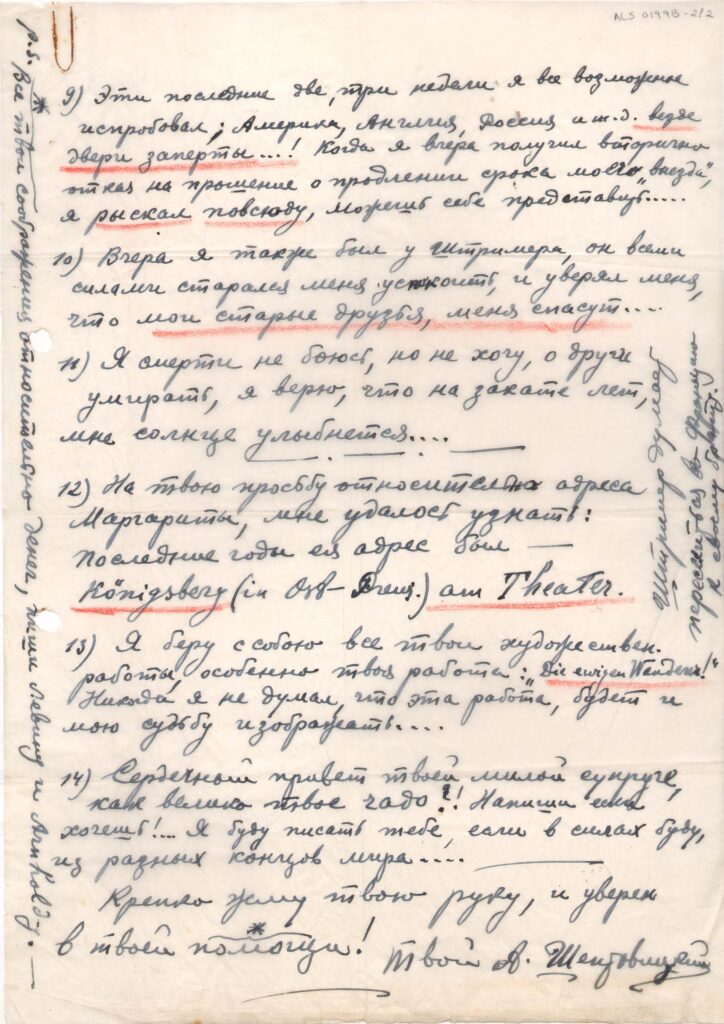 ALS 0199B-2/2
9) Эти последние две, три недели я все возможное
испробовал; Америка, Англия, Россия и т.д. везде
двери заперты....! Когда я вчера получил вторично
отказ на прошение о продлении срока моего „выезда",
я рыскал повсюду, можешь себе представить.....
10) Вчера я также был у Штримера, он всеми
силами старался меня успокоить, и уверял меня,
что мои старые друзья, меня спасут....
11) Я смерти не боюсь, но не хочу, о други
умирать, я верю, что на закате лет,
мне солнце улыбнется....
12) На твою просьбу относительно адреса
Маргариты, мне удалось узнать:
последние годы ея адрес был —
Königsberg (in Ost-Preuß.) am Theater.
13) Я беру с собою все твои художествен.
работы, особенно твоя работа: „Die ewigen Wanderer!"
Никогда я не думал, что эта работа, будет и
мою судьбу изображать....
14) Сердечный привет твоей милой супруге,
как велико твое чадо?! Напиши если
хочешь!... Я буду писать тебе, если в силах буду,
из разных концов мира....
Крепко жму твою руку, и уверен
в твоей помощи!
Твой А.
Штример думает
переехать во Францию
к своему брату.
P.S. * Все твои соображения относительно денег, пиши Левину и Arnholdу. —